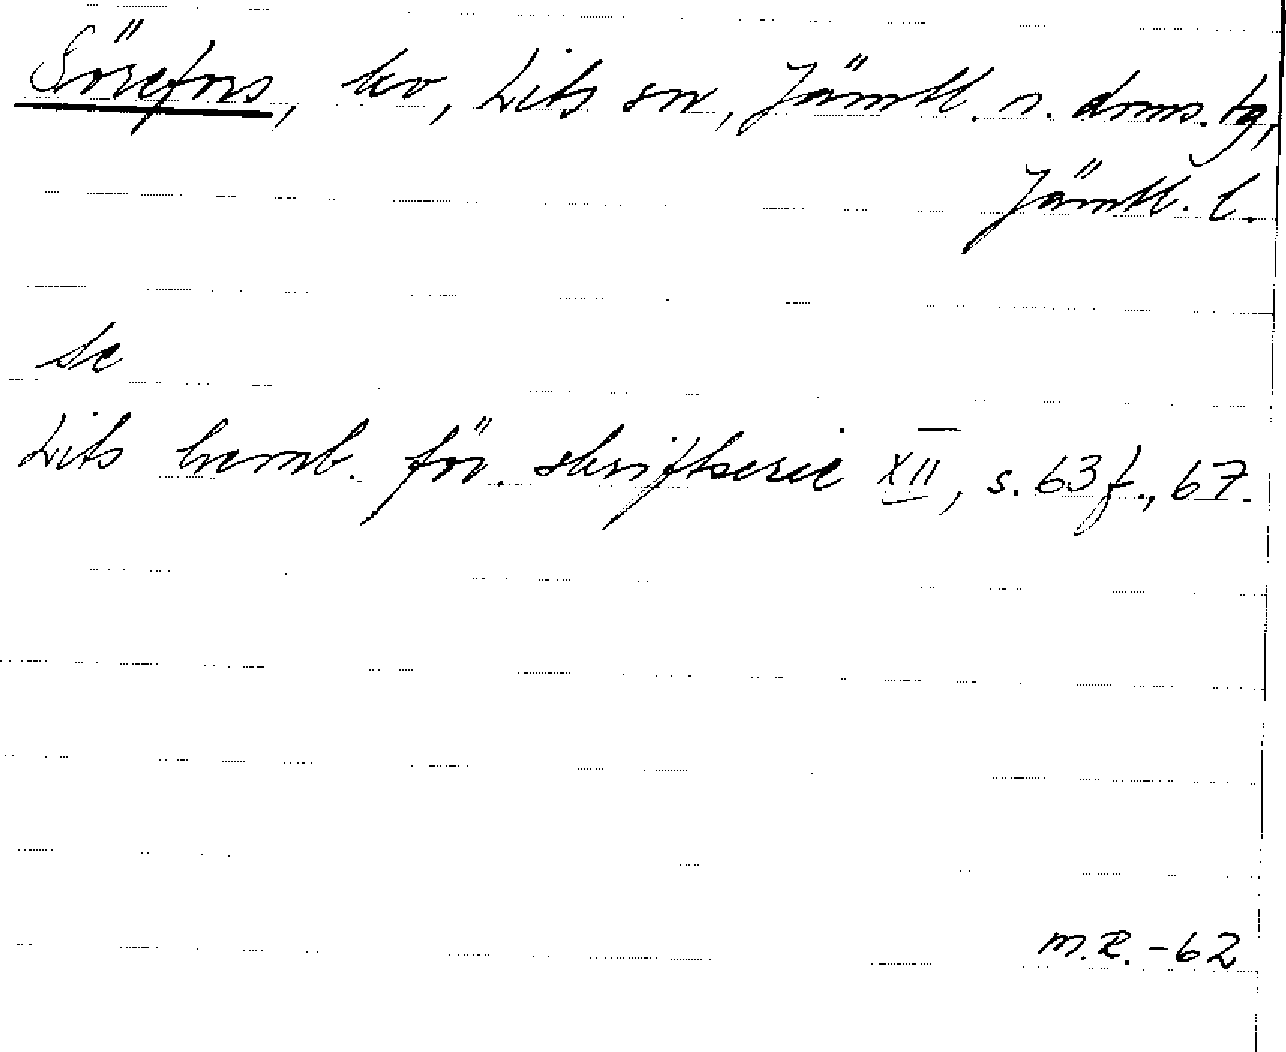 Sörefors, kv, Lits sn, Jämtl. n. doms. tg,
Jämtl. l.
Se
Lits hemb. för. skriftserie XII, s. 63 f., 67.
M.R. -62